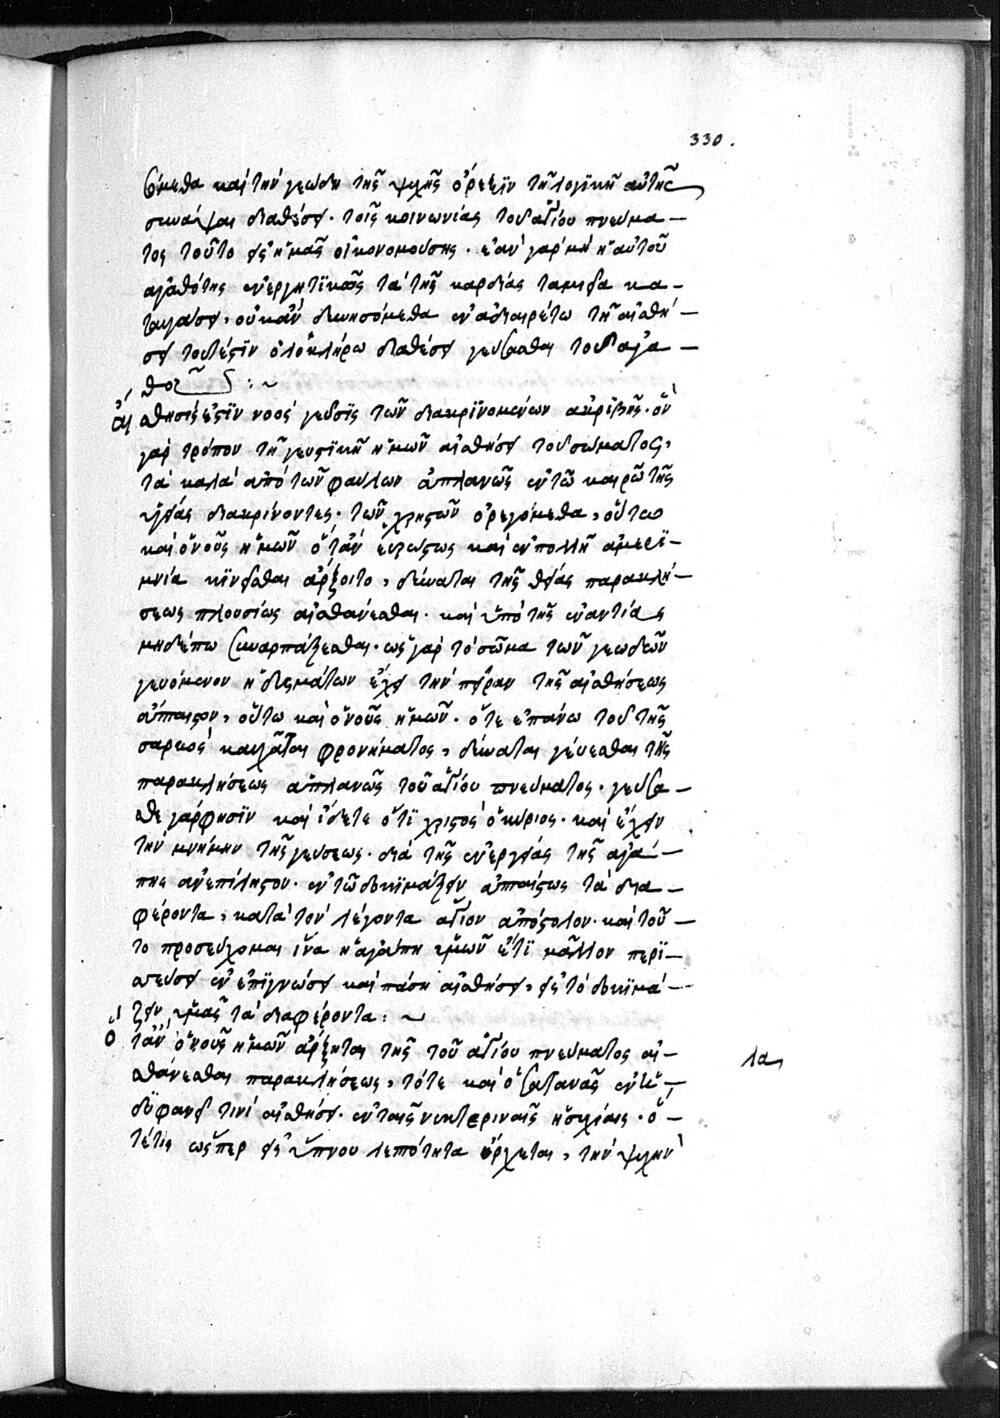 330.
σόμεθα καὶ τὴν γεώδη τῆς ψυχῆς ὄρεξιν τῇ λογϊκῇ αὐτῆς
συνάψαι διαθέσει· τοῖς κοινωνίας τοῦ ἁγίου πνεύμα–
τος τοῦτο εἰς ἡμᾶς οἰκονομούσης· ἐὰν γὰρ μὴ ἡ αὐτοῦ
ἀγαθότης ἐνεργητϊκῶς τὰ τῆς καρδίας ταμεῖα κα–
ταυγάσῃ, οὐκ ἂν δυνησόμεθα ἐν ἀδιαιρέτω τῇ αἰσθή–
σει τουτέστϊν ὁλοκλήρω διαθέσει γεύσασθαι τοῦ ἀγα–
θοῦ :~
Αἴσθησίς ἐστϊν νοὸς γεῦσϊς τῶν διακρϊνομένων ἀκριβής· ὃν
γὰρ τρόπον τῇ γευστϊκῇ ἡμῶν αἰσθήσει τοῦ σώματος,
τὰ καλὰ ἀπὸ τῶν φαύλων ἀπλανῶς ἐν τῶ καιρῶ τῆς
ὑγείας διακρίνοντες· τῶν χρηστῶν ὀρεγόμεθα, οὕτω
καὶ ὁ νοῦς ἡμῶν ὅταν εὐρώστως καὶ ἐν πολλῇ ἀμερϊ–
μνία κϊνεῖσθαι ἄρξοιτο, δύναται τῆς θείας παρακλή–
σεως πλουσίως αἰσθάνεσθαι· καὶ ὑπὸ τῆς ἐναντίας
μηδέπω συναρπάζεσθαι· ὡς γὰρ τὸ σῶμα τῶν γεωδῶν
γευόμενον ἡδεσμάτων ἔχει τὴν πεῖραν τῆς αἰσθήσεως
ἄπταιστον, οὕτω καὶ ὁ νοῦς ἡμῶν· ὅτε ἐπάνω τοῦ τῆς
σαρκὸς καυχᾶται φρονήματος, δύναται γεύεσθαι τῆς
παρακλήσεως ἀπλανῶς τοῦ ἁγίου πνεύματος· γεύσα–
σθε γάρ φησϊν καὶ ἴδετε ὅτϊ χρηστὸς ὁ κύριος· καὶ ἔχειν
τὴν μνήμην τῆς γεύσεως· διὰ τῆς ἐνεργείας τῆς ἀγά–
πης ἀνεπίληστον· ἐν τῶ δοκϊμάζειν ἀπταίστως τὰ δια–
φέροντα, κατὰ τὸν λέγοντα ἅγιον ἀπόστολον· καὶ τοῦ–
το προσεύχομαι ἵνα ἡ ἀγάπη ὑμῶν ἔτϊ μᾶλλον περϊ–
σσεύσῃ ἐν ἐπϊγνώσει καὶ πάσῃ αἰσθήσει, εἰς τὸ δοκϊμά–
ζειν ὑμᾶς τὰ διαφέροντα :~
Ὅταν ὁ νοῦς ἡμῶν ἄρξηται τῆς τοῦ ἁγίου πνεύματος αἰ–
λα
σθάνεσθαι παρακλήσεως, τότε καὶ ὁ σατανᾶς ἐν ἡ–
δυφανεῖ τινὶ αἰσθήσει· ἐν ταῖς νυκτεριναῖς ἡσυχίαις· ὅ–
τέ τις ὥσπερ εἰς ὕπνου λεπτότητα ἔρχεται, τὴν ψυχὴν